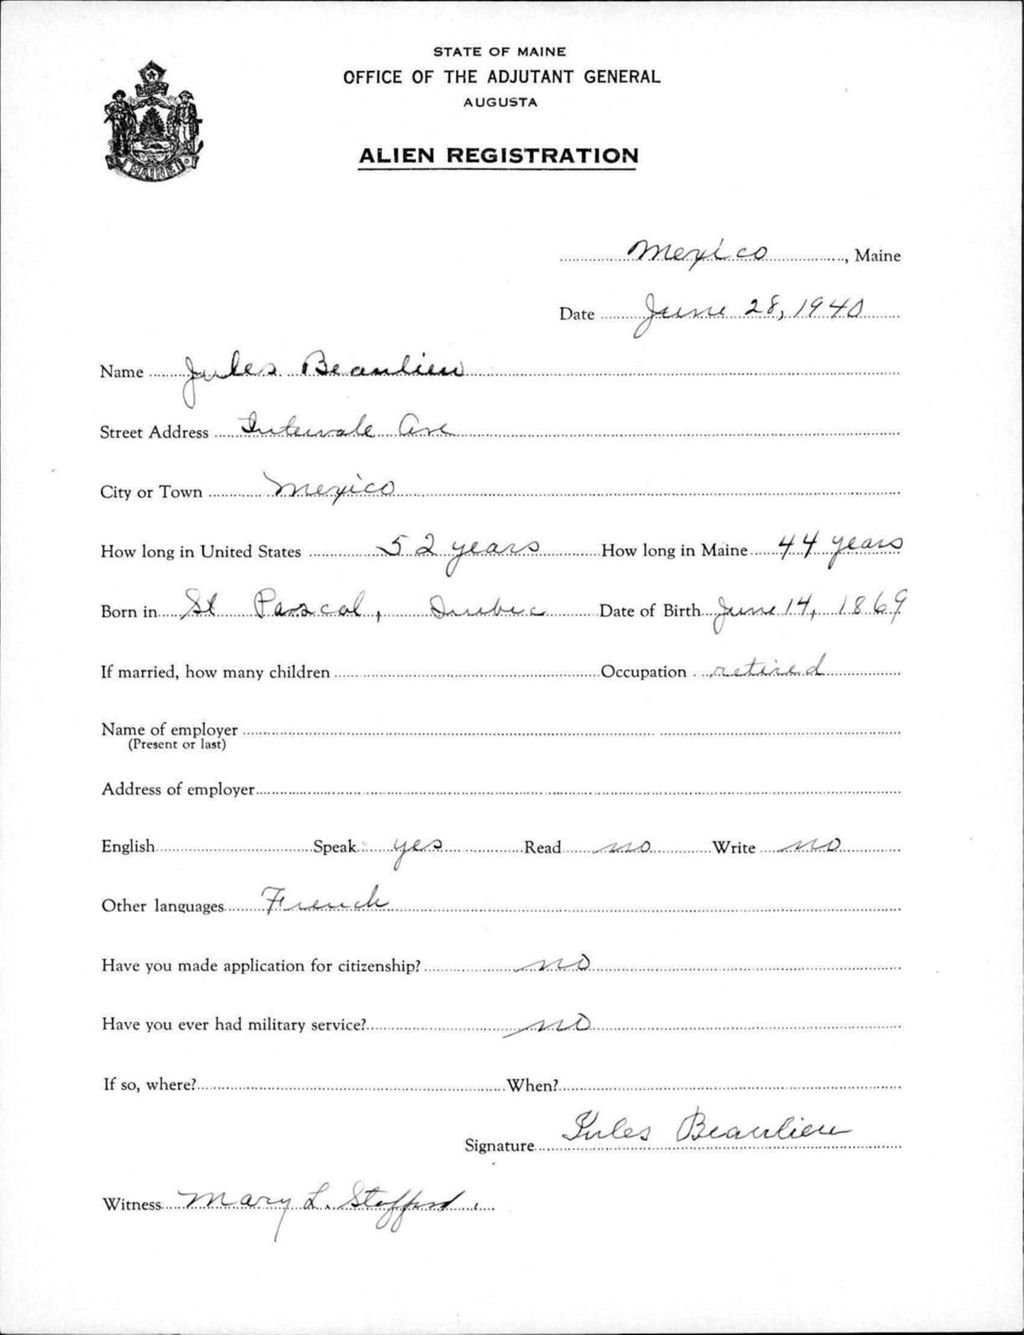 STATE OF MAINE
OFFICE OF THE ADJUTANT GENERAL
AUGUSTA
ALIEN REGISTRATION
MAINE
Mexico, Maine
Date June 28, 1940
Name Jules Beaulieu
Street Address Intervale Ave
City or Town Mexico
How long in United States 52 years How long in Maine 44 years
Born in St Pascal, Quebec Date of Birth June 14, 1869
If married, how many children Occupation retired
Name of employer
(Present or last)
Address of employer
English Speak yes Read no Write no
Other languages French
Have you made application for citizenship? no
Have you ever had military service? no
If so, where? When?
Signature Jules Beaulieu
Witness Mary L. Stafford